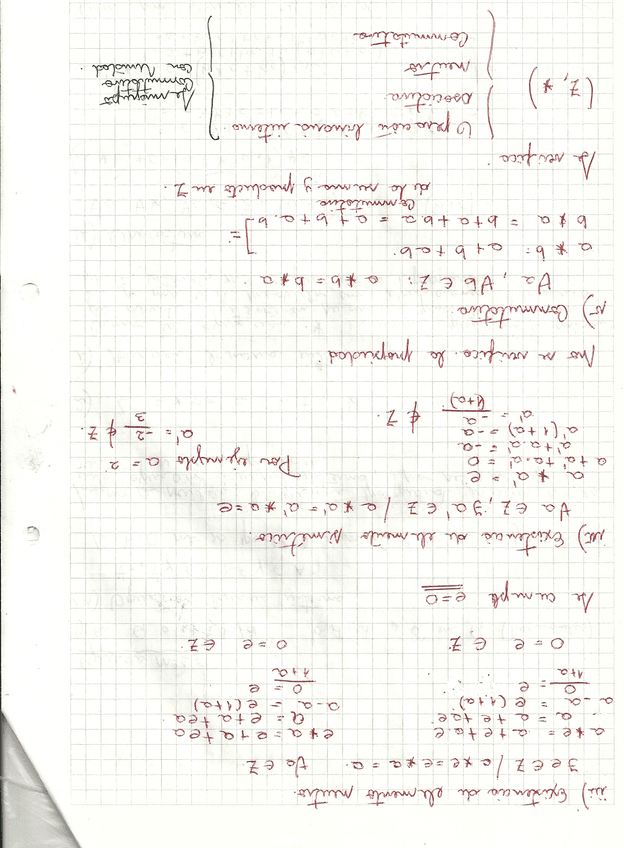 iii) Existencia de elemento neutro.
∃ e ∈ Z / a * e = e * a = a. ∀a ∈ Z
a * e = a + e + a.e    e * a = e + a + ea
a = a + e + ae    a = e + a + ea
a - a = e (1+a)    a - a = e (1+a)
0/(1+a) = e    0/(1+a) = e
0 = e ∈ Z.    0 = e ∈ Z.
Se cumple e = 0
iv) Existencia de elemento simétrico.
∀a ∈ Z, ∃ a' ∈ Z / a * a' = a' * a = e
a * a' = e
a + a' + a.a' = 0    Por ejemplo a = 2
a' + a.a' = -a    a' = -2/3 ∉ Z.
a' (1+a) = -a
a' = -a/(1+a) ∉ Z.
No se verifica la propiedad
v) Conmutativa
∀a, ∀b ∈ Z: a * b = b * a
a * b = a + b + ab.
b * a = b + a + b.a = a + b + a.b ] =
Conmutativa
de la suma y producto en Z.
Se verifica.
(Z, *)
Operación binaria interna.
asociativa
neutro
Conmutativa
Semigrupo
Conmutativo
con Unidad.